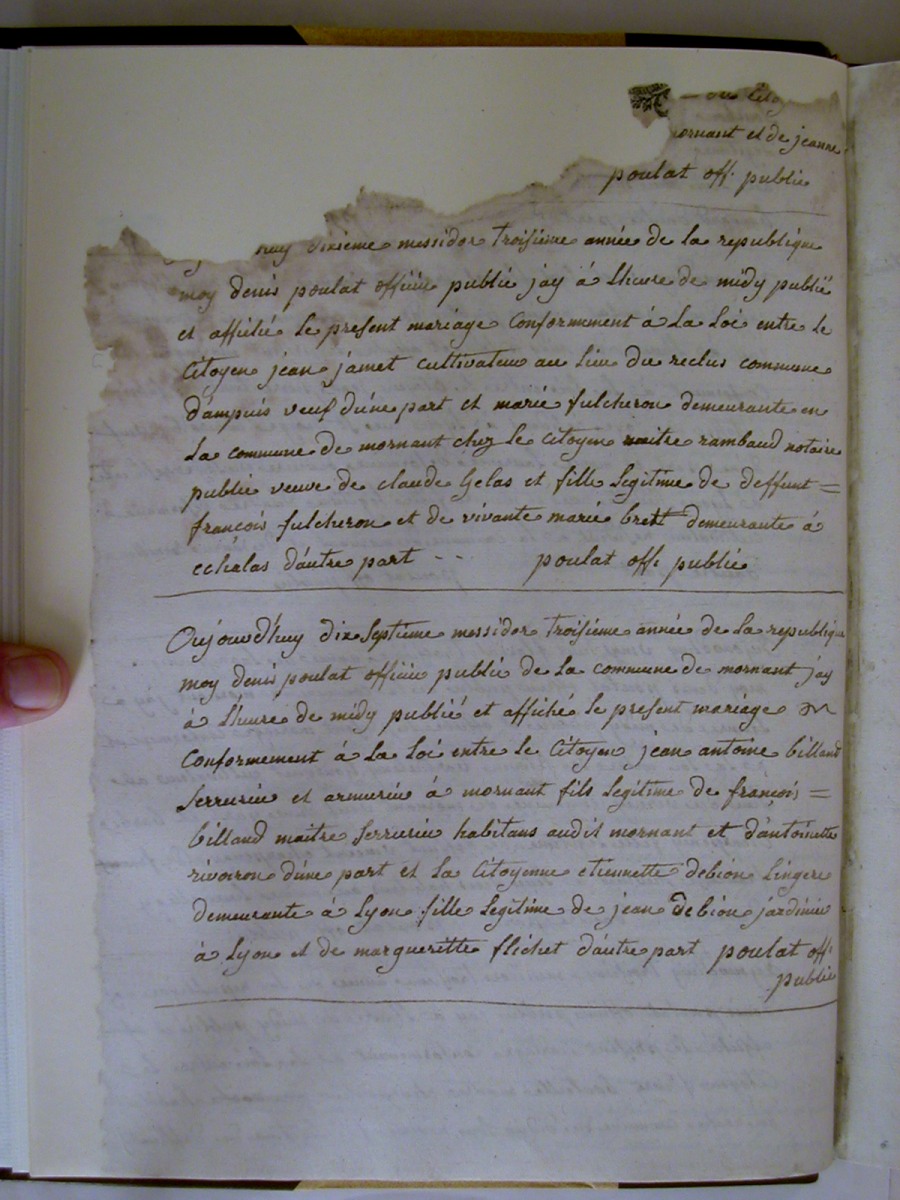 ornant et de jeanne
poulat off. publie
huy dixième messidor troisieme année de la republique
moy denis poulat officier publie jay á Lheure de midy publié
et affiché le present mariage conformement á La Loi entre le
Citoyen jean jamet cultivateur au lieu du reclus commune
d'ampuis veuf d'une part et marie fulcheron demeurante en
La commune de mornant chez le citoyen maitre rambaud notaire
publie veuve de claude Gelas et fille legitime de deffunt =
françois fulcheron et de vivante marie brett demeurante á
echalas d'autre part - - poulat off. publie
Oujourd'huy dix Septieme messidor troisieme année de La republique
moy denis poulat officier publie de La commune de mornant jay
á Lheure de midy publié et affiché le present mariage
conformement á La Loi entre le Citoyen jean antoine billand
Serrurier et armurier á mornant fils legitime de françois =
billand maitre Serrurier habitans audit mornant et d'antoinette
rivoiron d'une part et La Citoyenne etiennette debion Lingere
demeurante á Lyon fille Legitime de jean debion jardinier
á Lyon et de margueritte flichet d'autre part poulat off.
publie